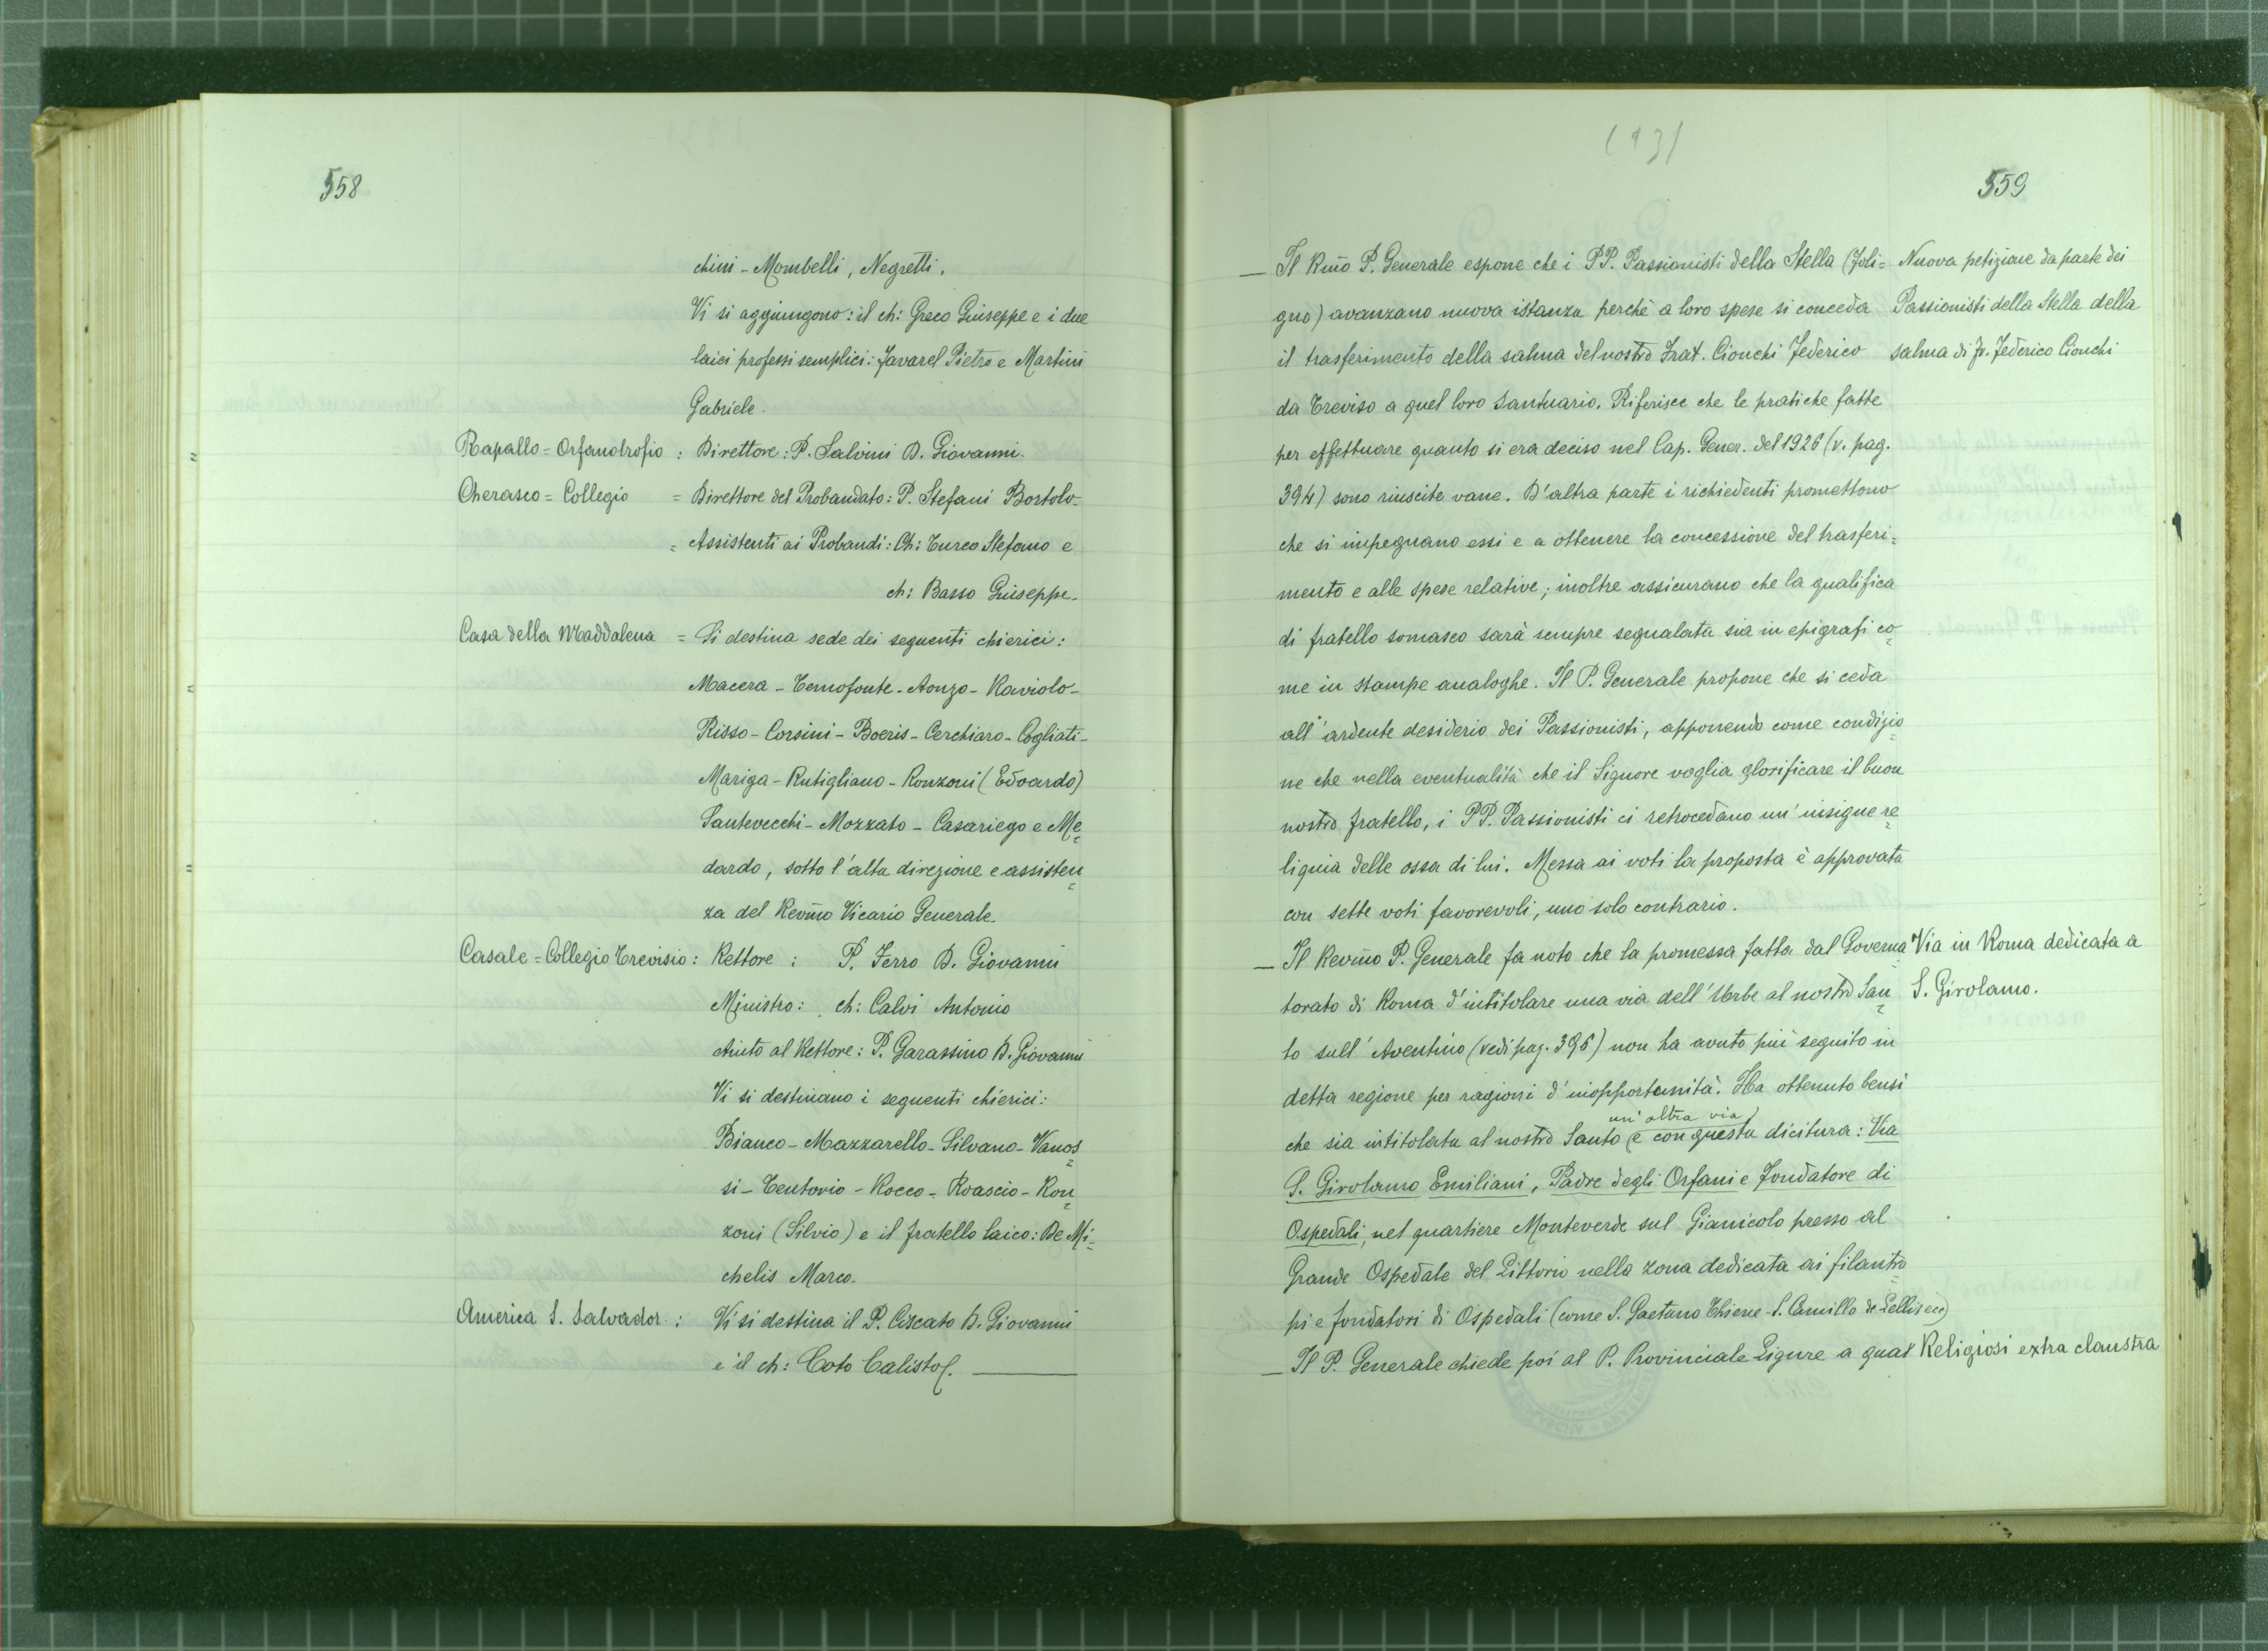 558
chini - Mombelli, Negretti.
Vi si aggiungono: il ch: Greco Giuseppe e i due
laici professi semplici: Favarel Pietro e Martini
Gabriele.
Rapallo = Orfanotrofio : Direttore: P. Salvini D. Giovanni.
Cherasco = Collegio = Direttore del Probandato: P. Stefani Bortolo-
= Assistenti ai Probandi: Ch: Turco Stefano e
ch: Basso Giuseppe-
Casa della Maddalena = Si destina sede dei seguenti chierici:
Macera - Temofonte - Aonzo - Raviolo-
Risso - Corsini - Boeris - Cerchiaro - Cogliati-
Mariga - Rutigliano - Ronzoni (Edoardo)
Santevecchi - Mozzato - Casariego e Me=
dardo, sotto l'alta direzione e assisten=
za del Revm̃o Vicario Generale.
Casale = Collegio Trevisio : Rettore : P. Ferro D. Giovanni
Ministro: ch: Calvi Antonio
Aiuto al Rettore: P. Garassino D. Giovanni
Vi si destinano i seguenti chierici:
Bianco - Mazzarello - Silvano - Vanos=
si - Tentorio - Rocco - Roascio - Ron=
zoni (Silvio) e il fratello laico: De Mi=
chelis Marco.
America S. Salvador : Vi si destina il P. Ciscato D. Giovanni
e il ch: Coto Calisto.
559
— Il Rm̃o P. Generale espone che i PP. Passionisti della Stella (Foli=
gno) avanzano nuova istanza perchè a loro spese si conceda
il trasferimento della salma del nostro Frat. Cionchi Federico
da Treviso a quel loro Santuario. Riferisce che le pratiche fatte
per effettuare quanto si era deciso nel Cap. Gener. del 1926 (v. pag.
394) sono riuscite vane. D'altra parte i richiedenti promettono
che si impegnano essi e a ottenere la concessione del trasferi=
mento e alle spese relative; inoltre assicurano che la qualifica
di fratello somasco sarà sempre segnalata sia in epigrafi co=
me in stampe analoghe. Il P. Generale propone che si ceda
all'ardente desiderio dei Passionisti, apponendo come condizio=
ne che nella eventualità che il Signore voglia glorificare il buon
nostro fratello, i PP. Passionisti ci retrocedano un'insigne re=
liquia delle ossa di lui. Messa ai voti la proposta è approvata
con sette voti favorevoli, uno solo contrario.
— Il Revm̃o P. Generale fa noto che la promessa fatta dal Governa=
torato di Roma d'intitolare una via dell'Urbe al nostro San=
to sull'Aventino (vedi pag. 396) non ha avuto più seguito in
detta regione per ragioni d'inopportunità. Ha ottenuto bensì
un'altra via
che sia intitolata al nostro Santo e con questa dicitura: Via
S. Girolamo Emiliani, Padre degli Orfani e Fondatore di
Ospedali, nel quartiere Monteverde sul Gianicolo presso al
Grande Ospedale del Littorio nella zona dedicata ai filantro=
pi e fondatori di Ospedali (come S. Gaetano Thiene - S. Camillo de Lellis ecc)
— Il P. Generale chiede poi al P. Provinciale Ligure a qual
Nuova petizione da parte dei
Passionisti della Stella della
salma di Fr. Federico Cionchi
Via in Roma dedicata a
S. Girolamo.
Religiosi extra claustra